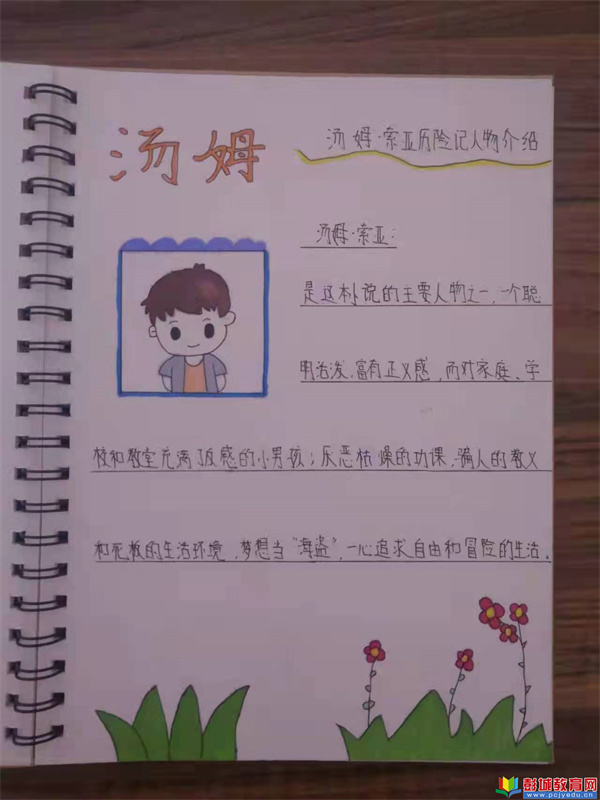 汤姆
汤姆·索亚历险记人物介绍
汤姆·索亚：
是这本小说的主要人物之一，一个聪
明活泼，富有正义感，而对家庭、学
校和教室充满了反感的小男孩；厌恶枯燥的功课，骗人的教义
和死板的生活环境，梦想当“海盗”，一心追求自由和冒险的生活。
彭城教育网
www.pcjyedu.cn